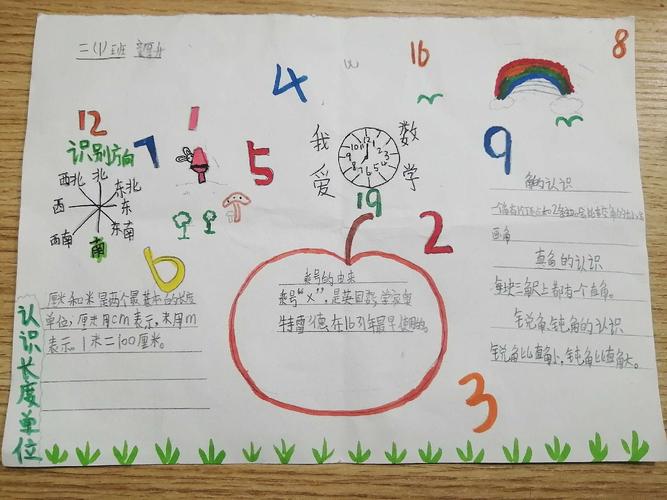 二(1)班
4
16
8
12
1
识别方向
7
5
我爱数学
12
11
1
10
2
9
3
8
4
7
5
6
19
9
西北 北 东北
西 东
西南 南 东南
6
2
3
角的认识
一个角有
画角
直角的认识
每块三角尺上都有一个直角。
锐角、钝角的认识
锐角比直角小，钝角比直角大。
乘号的由来
乘号“×”，是英国数学家奥
特雷德在1631年最早使用的。
认识长度单位
厘米和米是两个最基本的长度
单位，厘米用cm表示，米用m
表示。1米=100厘米。